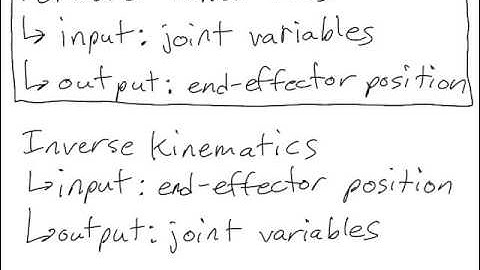 ↳ input: joint variables
↳ output: end-effector position
Inverse Kinematics
↳ input: end-effector position
↳ output: joint variables